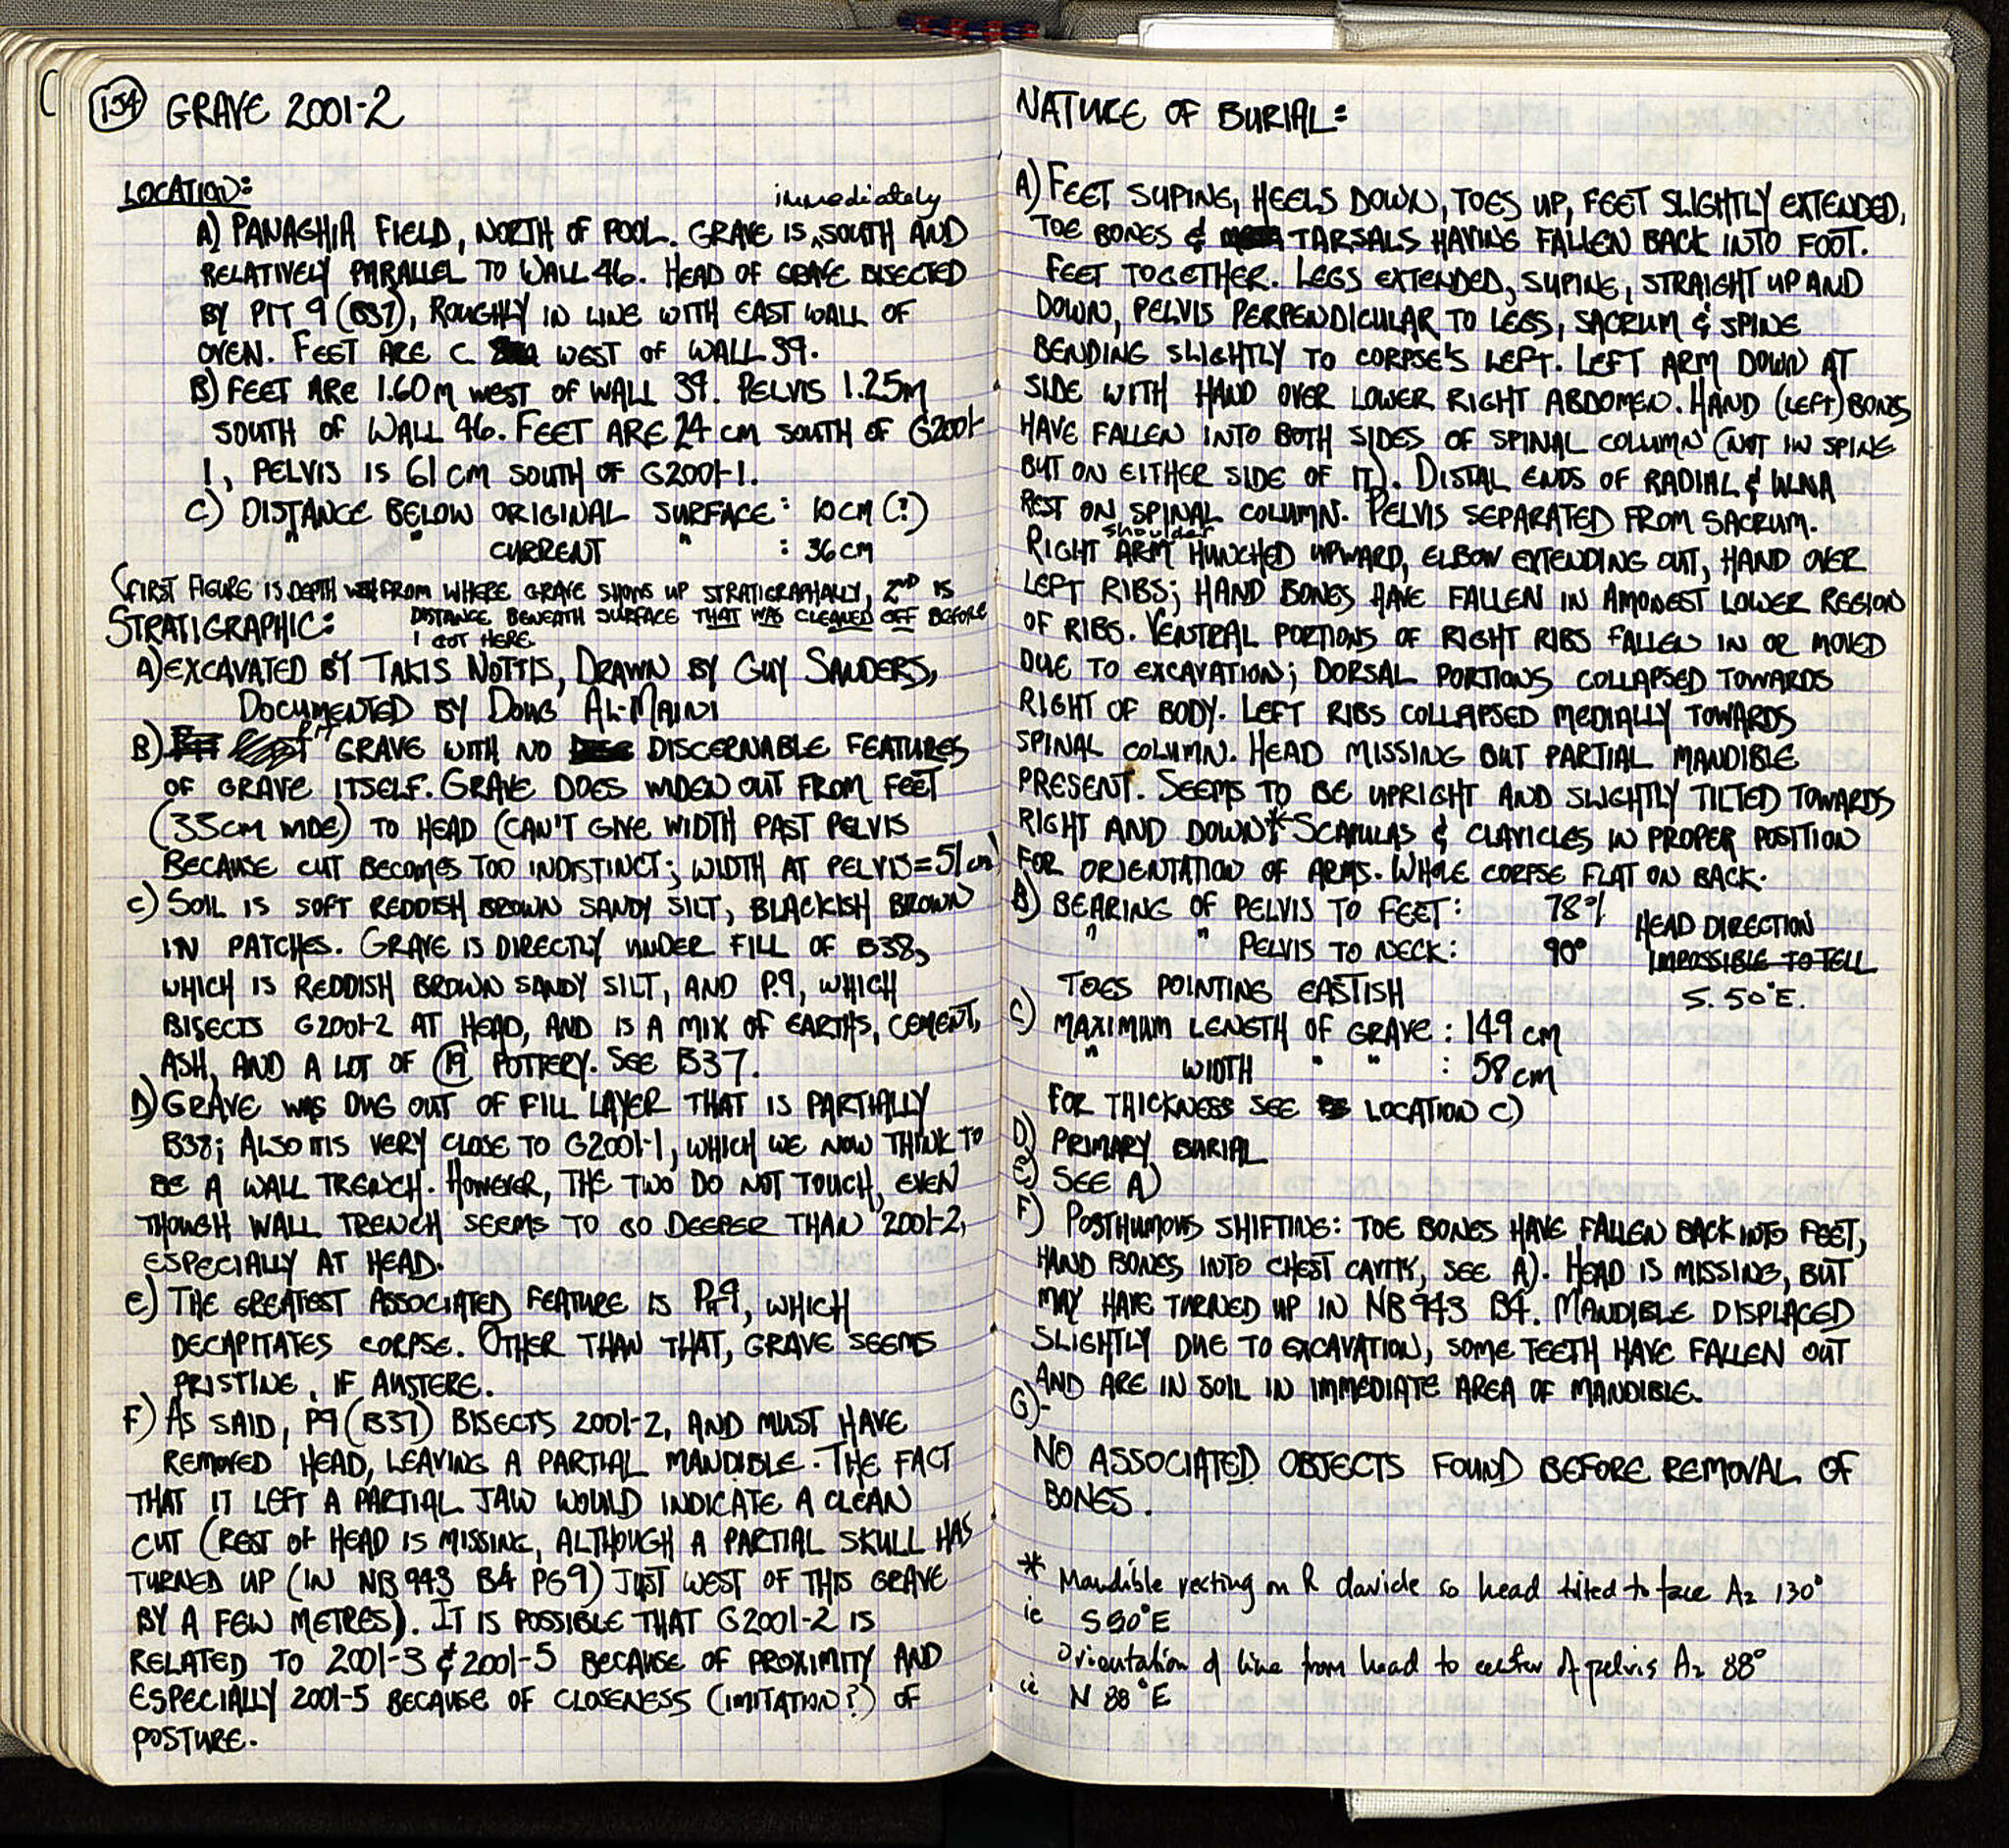 154 GRAVE 2001-2
LOCATION:
immediately
A) PANAGHIA FIELD, NORTH OF POOL. GRAVE IS SOUTH AND
RELATIVELY PARALLEL TO WALL 46. HEAD OF GRAVE BISECTED
BY PIT 9 (B37), ROUGHLY IN LINE WITH EAST WALL OF
OVEN. FEET ARE C. WEST OF WALL 39.
B) FEET ARE 1.60M WEST OF WALL 39. PELVIS 1.25M
SOUTH OF WALL 46. FEET ARE 24 CM SOUTH OF G2001-
1, PELVIS IS 61 CM SOUTH OF G2001-1.
C) DISTANCE BELOW ORIGINAL SURFACE: 10CM (?)
" " CURRENT " : 36CM
(FIRST FIGURE IS DEPTH FROM WHERE GRAVE SHOWS UP STRATIGRAPHALLY, 2ND IS
DISTANCE BENEATH SURFACE THAT WAS CLEANED OFF BEFORE
I GOT HERE.
STRATIGRAPHIC:
A) EXCAVATED BY TAKIS NOTTIS, DRAWN BY GUY SANDERS,
DOCUMENTED BY DOUG AL-MAINI
B) PIT GRAVE WITH NO DISCERNABLE FEATURES
OF GRAVE ITSELF. GRAVE DOES WIDEN OUT FROM FEET
(33CM WIDE) TO HEAD (CAN'T GIVE WIDTH PAST PELVIS
BECAUSE CUT BECOMES TOO INDISTINCT; WIDTH AT PELVIS=51cm)
C) SOIL IS SOFT REDDISH BROWN SANDY SILT, BLACKISH BROWN
IN PATCHES. GRAVE IS DIRECTLY UNDER FILL OF B38,
WHICH IS REDDISH BROWN SANDY SILT, AND P.9, WHICH
BISECTS G2001-2 AT HEAD, AND IS A MIX OF EARTHS, CEMENT,
ASH, AND A LOT OF POTTERY. SEE B37.
D) GRAVE WAS DUG OUT OF FILL LAYER THAT IS PARTIALLY
B38; ALSO IT IS VERY CLOSE TO G2001-1, WHICH WE NOW THINK TO
BE A WALL TRENCH. HOWEVER, THE TWO DO NOT TOUCH, EVEN
THOUGH WALL TRENCH SEEMS TO GO DEEPER THAN 2001-2,
ESPECIALLY AT HEAD.
E) THE GREATEST ASSOCIATED FEATURE IS PIT 9, WHICH
DECAPITATES CORPSE. OTHER THAN THAT, GRAVE SEEMS
PRISTINE, IF AUSTERE.
F) AS SAID, P9 (B37) BISECTS 2001-2, AND MUST HAVE
REMOVED HEAD, LEAVING A PARTIAL MANDIBLE. THE FACT
THAT IT LEFT A PARTIAL JAW WOULD INDICATE A CLEAN
CUT (REST OF HEAD IS MISSING, ALTHOUGH A PARTIAL SKULL HAS
TURNED UP (IN NB 943 B4 PG9) JUST WEST OF THIS GRAVE
BY A FEW METRES). IT IS POSSIBLE THAT G2001-2 IS
RELATED TO 2001-3 & 2001-5 BECAUSE OF PROXIMITY AND
ESPECIALLY 2001-5 BECAUSE OF CLOSENESS (IMITATION?) OF
POSTURE.
NATURE OF BURIAL:
A) FEET SUPINE, HEELS DOWN, TOES UP, FEET SLIGHTLY EXTENDED,
TOE BONES & TARSALS HAVING FALLEN BACK INTO FOOT.
FEET TOGETHER. LEGS EXTENDED, SUPINE, STRAIGHT UP AND
DOWN, PELVIS PERPENDICULAR TO LEGS, SACRUM & SPINE
BENDING SLIGHTLY TO CORPSE'S LEFT. LEFT ARM DOWN AT
SIDE WITH HAND OVER LOWER RIGHT ABDOMEN. HAND (LEFT) BONES
HAVE FALLEN INTO BOTH SIDES OF SPINAL COLUMN (NOT IN SPINE
BUT ON EITHER SIDE OF IT). DISTAL ENDS OF RADIAL & ULNA
REST ON SPINAL COLUMN. PELVIS SEPARATED FROM SACRUM.
shoulder
RIGHT ARM HUNCHED UPWARD, ELBOW EXTENDING OUT, HAND OVER
LEFT RIBS; HAND BONES HAVE FALLEN IN AMONGST LOWER REGION
OF RIBS. VENTRAL PORTIONS OF RIGHT RIBS FALLEN IN OR MOVED
DUE TO EXCAVATION; DORSAL PORTIONS COLLAPSED TOWARDS
RIGHT OF BODY. LEFT RIBS COLLAPSED MEDIALLY TOWARDS
SPINAL COLUMN. HEAD MISSING BUT PARTIAL MANDIBLE
PRESENT. SEEMS TO BE UPRIGHT AND SLIGHTLY TILTED TOWARDS
RIGHT AND DOWN* SCAPULAS & CLAVICLES IN PROPER POSITION
FOR ORIENTATION OF ARMS. WHOLE CORPSE FLAT ON BACK.
B) BEARING OF PELVIS TO FEET: 78° HEAD DIRECTION
" " PELVIS TO NECK: 90° IMPOSSIBLE TO TELL
TOES POINTING EASTISH S. 50°E.
C) MAXIMUM LENGTH OF GRAVE: 149 cm
" WIDTH " " : 58cm
FOR THICKNESS SEE LOCATION C)
D) PRIMARY BURIAL
E) SEE A)
F) POSTHUMOUS SHIFTING: TOE BONES HAVE FALLEN BACK INTO FEET,
HAND BONES INTO CHEST CAVITY, SEE A). HEAD IS MISSING, BUT
MAY HAVE TURNED UP IN NB 943 B4. MANDIBLE DISPLACED
SLIGHTLY DUE TO EXCAVATION, SOME TEETH HAVE FALLEN OUT
AND ARE IN SOIL IN IMMEDIATE AREA OF MANDIBLE.
G)-
NO ASSOCIATED OBJECTS FOUND BEFORE REMOVAL OF
BONES.
* Mandible resting on R clavicle so head tilted to face Az 130°
ie S50°E
Orientation of line from head to center of pelvis Az 88°
ie N 88°E